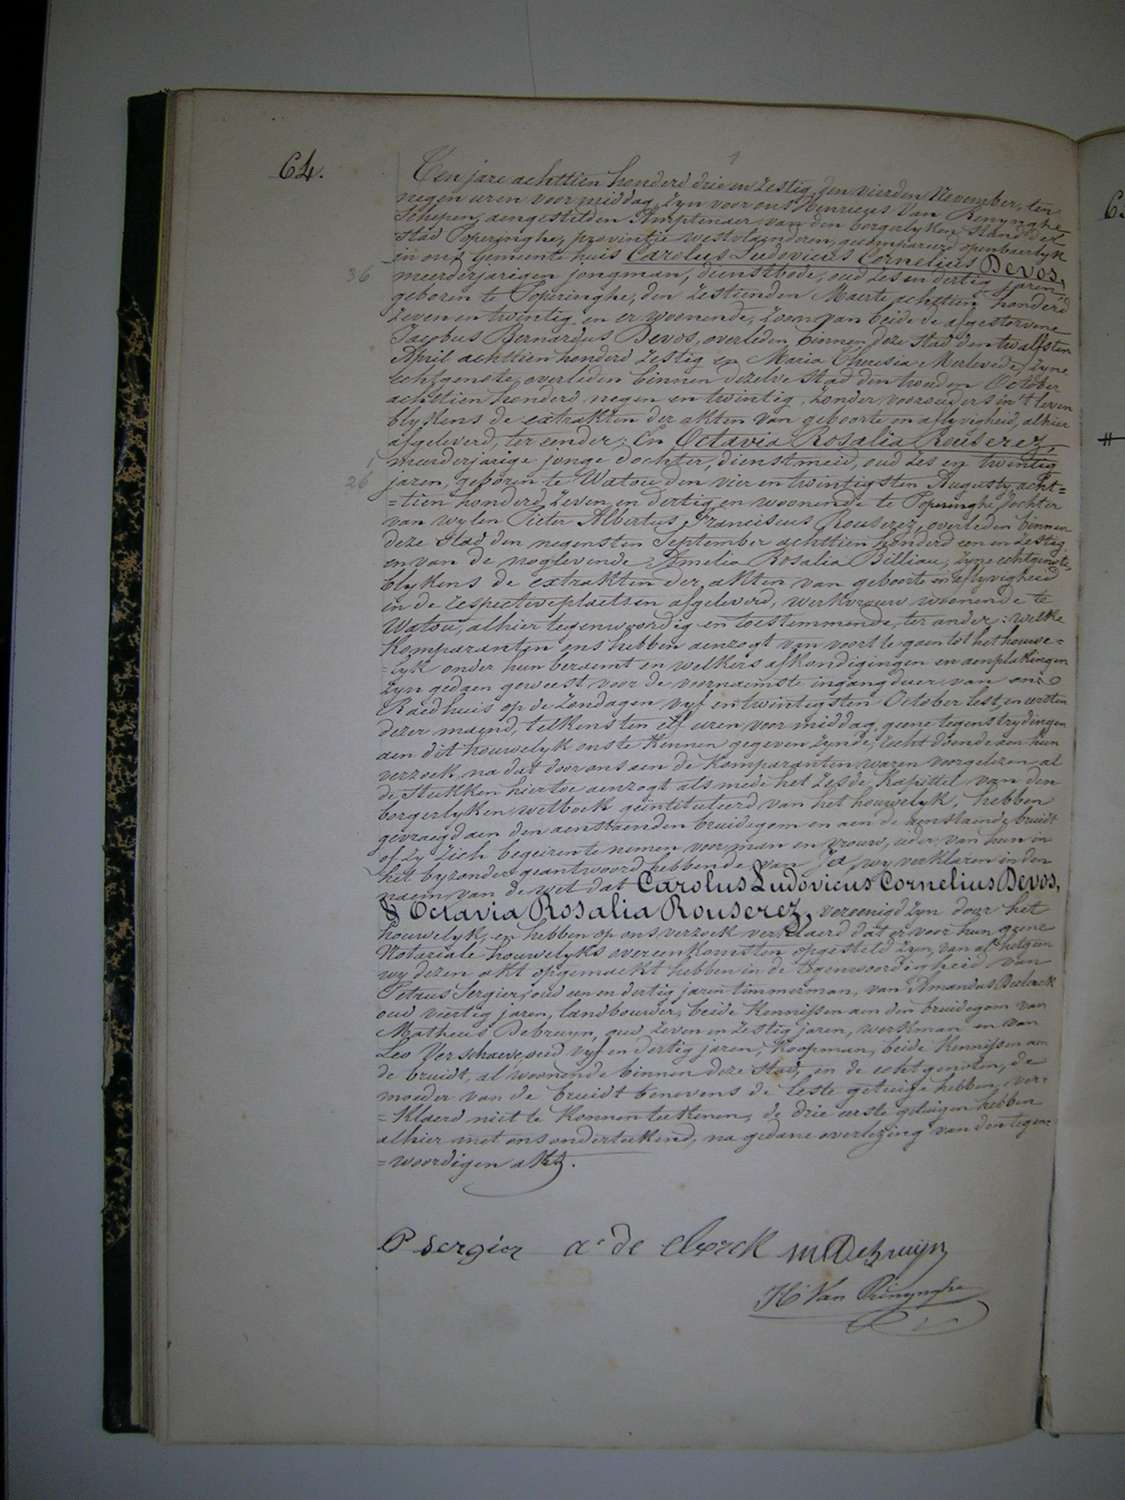 64.
Ten jare achttien honderd drie en zestig, den vierden November, ten
negen uren voor middag, zyn voor ons Henricus Van Renynghe
Schepen, aengestelden Amptenaer van den borgerlyken stand der
stad Poperinghe, provintie westvlaenderen, gekompareerd openbaerlyk
in ons Gemeente huis Carolus Ludovicus Cornelius Devos,
36
meerderjarigen jongman, dienstbode, oud zes en dertig jaren,
geboren te Poperinghe, den zestienden Maerte achttien honderd
zeven en twintig en er woonende, zoon van beide de afgestorvene
Jacobus Bernardus Devos, overleden binnen deze stad den twalfsten
April achttien honderd zestig en Maria Theresia Merlevede, zyne
echtgenote, overleden binnen dezelve stad den tweeden October
achttien honderd negen en twintig, zonder voorouders in 't leven
blykens de extrakten der akten van geboorte en aflyvigheid, alhier
afgeleverd, ter eender; En Octavia Rosalia Rouserez,
meerderjarige jonge dochter, dienstmeid, oud zes en twintig
26
jaren, geboren te Watou den vier en twintigsten Augusty acht=
=tien honderd zeven en dertig en woonende te Poperinghe, dochter
van wylen Pieter Albertus Franciscus Rouserez, overleden binnen
deze stad den negensten September achttien honderd een en zestig
en van de noglevende Amelia Rosalia Billiau, zyne echtgenote,
blykens de extrakten der akten van geboorte en aflyvigheid
in de respectiveplaetsen afgeleverd, werkvrouw woonende te
Watou, alhier tegenwoordig en toestemmende, ter ander; welke
Komparanten ons hebben aenzogt van voort te gaen tot het houwe=
=lyk onder hun beraemt en welkers afkondigingen en aenplakingen
zyn gedaen geweest voor de voornaemste ingangdeur van ons
Raedhuis op de zondagen vyf en twintigsten October lest, en eersten
dezer maend, telkensten elf uren voor middag, geene tegenstrydingen
aen dit houwelyk ons te kennen gegeven zynde, recht doende aen hun
verzoek, na dat door ons aen de Komparanten waren voorgelezen al
de stukken hiertoe aenzogt als mede het zesde Kapittel van den
borgerlyken wetboek geïntituleerd van het houwelyk, hebben
gevraegd aen den aenstaenden bruidegom en aen de aenstaende bruidt
of zy zich begeiren te nemen voor man en vrouw, ieder van hun in
het byzonder geantwoord hebbende van Ja, wy verklaren in den
naem van de wet dat Carolus Ludovicus Cornelius Devos,
& Octavia Rosalia Rouserez, vereenigd zyn door het
houwelyk, en hebben op ons verzoek verklaerd dat er voor hun geene
Notariale houwelyks overeenkomsten opgesteld zyn, van al 't helgeen
wy dezen akt opgemaekt hebben in de tegenwoordigheid van
Petrus Sergier, oud een en dertig jaren timmerman, van Amandus Declerck
oud viertig jaren, landbouwer, beide Kennissen aen den bruidegom van
Matheus Debruyn, oud zeven en zestig jaren, werkman en van
Leo Verschaeve, oud vyf en dertig jaren, Koopman, beide Kennissen aen
de bruidt, al woonende binnen deze stad, en de echtgenoten, de
moeder van de bruidt benevens de leste getuige hebben ver=
=klaerd niet te konnen teekenen, de drie eerste getuigen hebben
alhier met ons onderteekend, na gedane overlezing van den tegen=
=woordigen akt.
P sergier a. de clerck m Debruyn
H. Van Renynghe